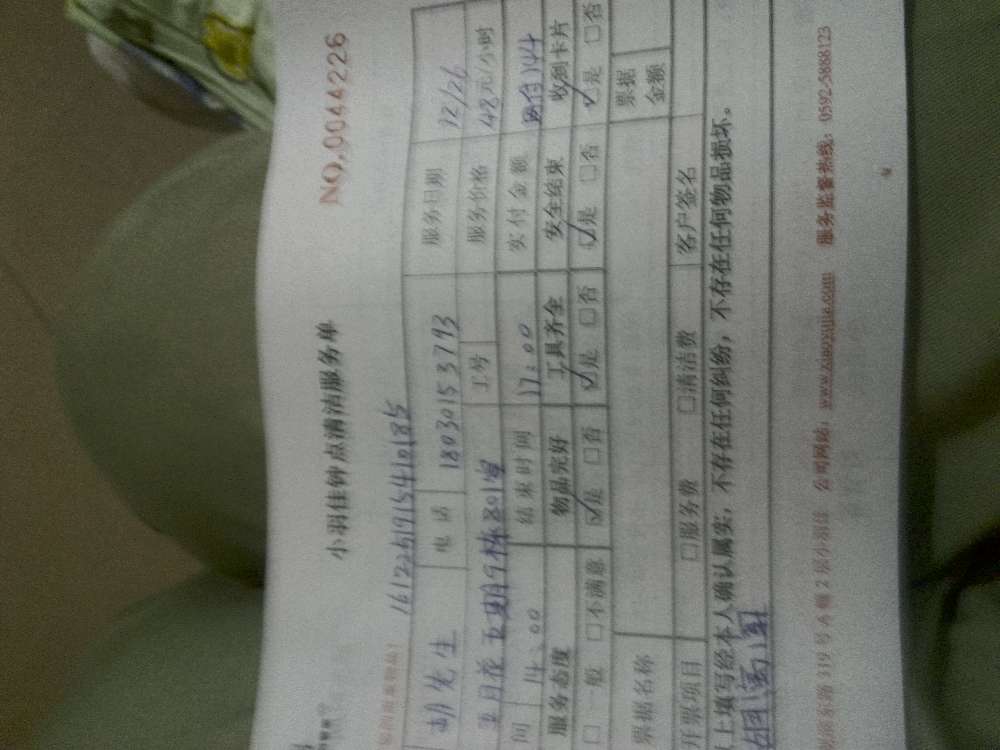 NO.0044226
小羽佳钟点清洁服务单
1612251915410185
胡先生 电话 18030153793 服务日期 12/26
9栋801室 工号 服务价格 48元/小时
间 14:00 结束时间 17:00 实付金额 144
服务态度 物品完好 工具齐全 安全结束 收到卡片
□一般 □不满意 ☑是 □否 ☑是 □否 ☑是 □否 ☑是 □否
票据名称 票据金额
开票项目 □服务费 □清洁费 客户签名
以上填写经本人确认属实，不存在任何纠纷，不存在任何物品损坏。
319号A幢2层小羽佳 公司网站：www.xiaoyujia.com 服务监督热线：0592-5868123